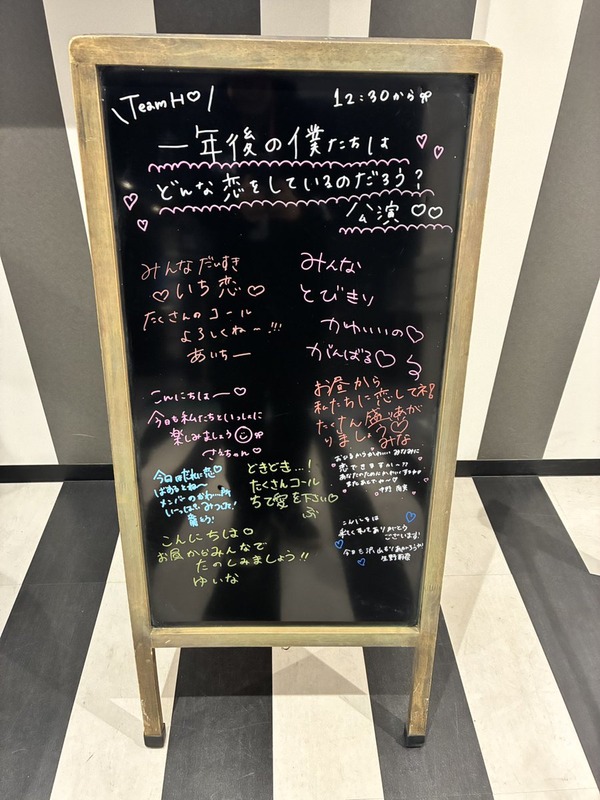 \TeamH♡/
12:30から
一年後の僕たちは
どんな恋をしているのだろう?
公演♡♡
みんなだいすき
♡いち恋♡
たくさんのコール
よろしくね〜!!!
あいちー
みんな
とびきり
かわいいの♡
がんばる♡
こんにちはー♡
今日も私たちといっしょに
楽しみましょう
さえちゃん♡
お昼から
私たちに恋してネ
たくさん盛りあが
りましょ♡
みな
今日はだれに恋♡
どきどき...!
たくさんコール
ちて愛を下さい♡
ぷ
こんにちは♡
お昼からみんなで
たのしみましょう!!
ゆいな
こんにちは
来てくれてありがとう
ございます!
生野莉奈